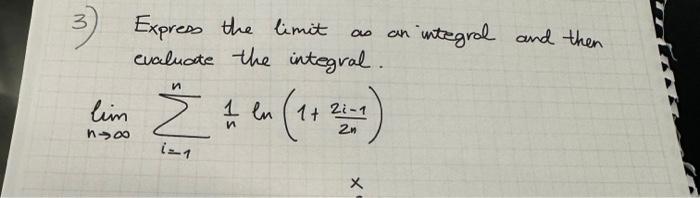 3) Express the limit as an integral and then
evaluate the integral.
lim n→∞ n Σ i=1 1/n ln (1 + 2i-1/2n)
x